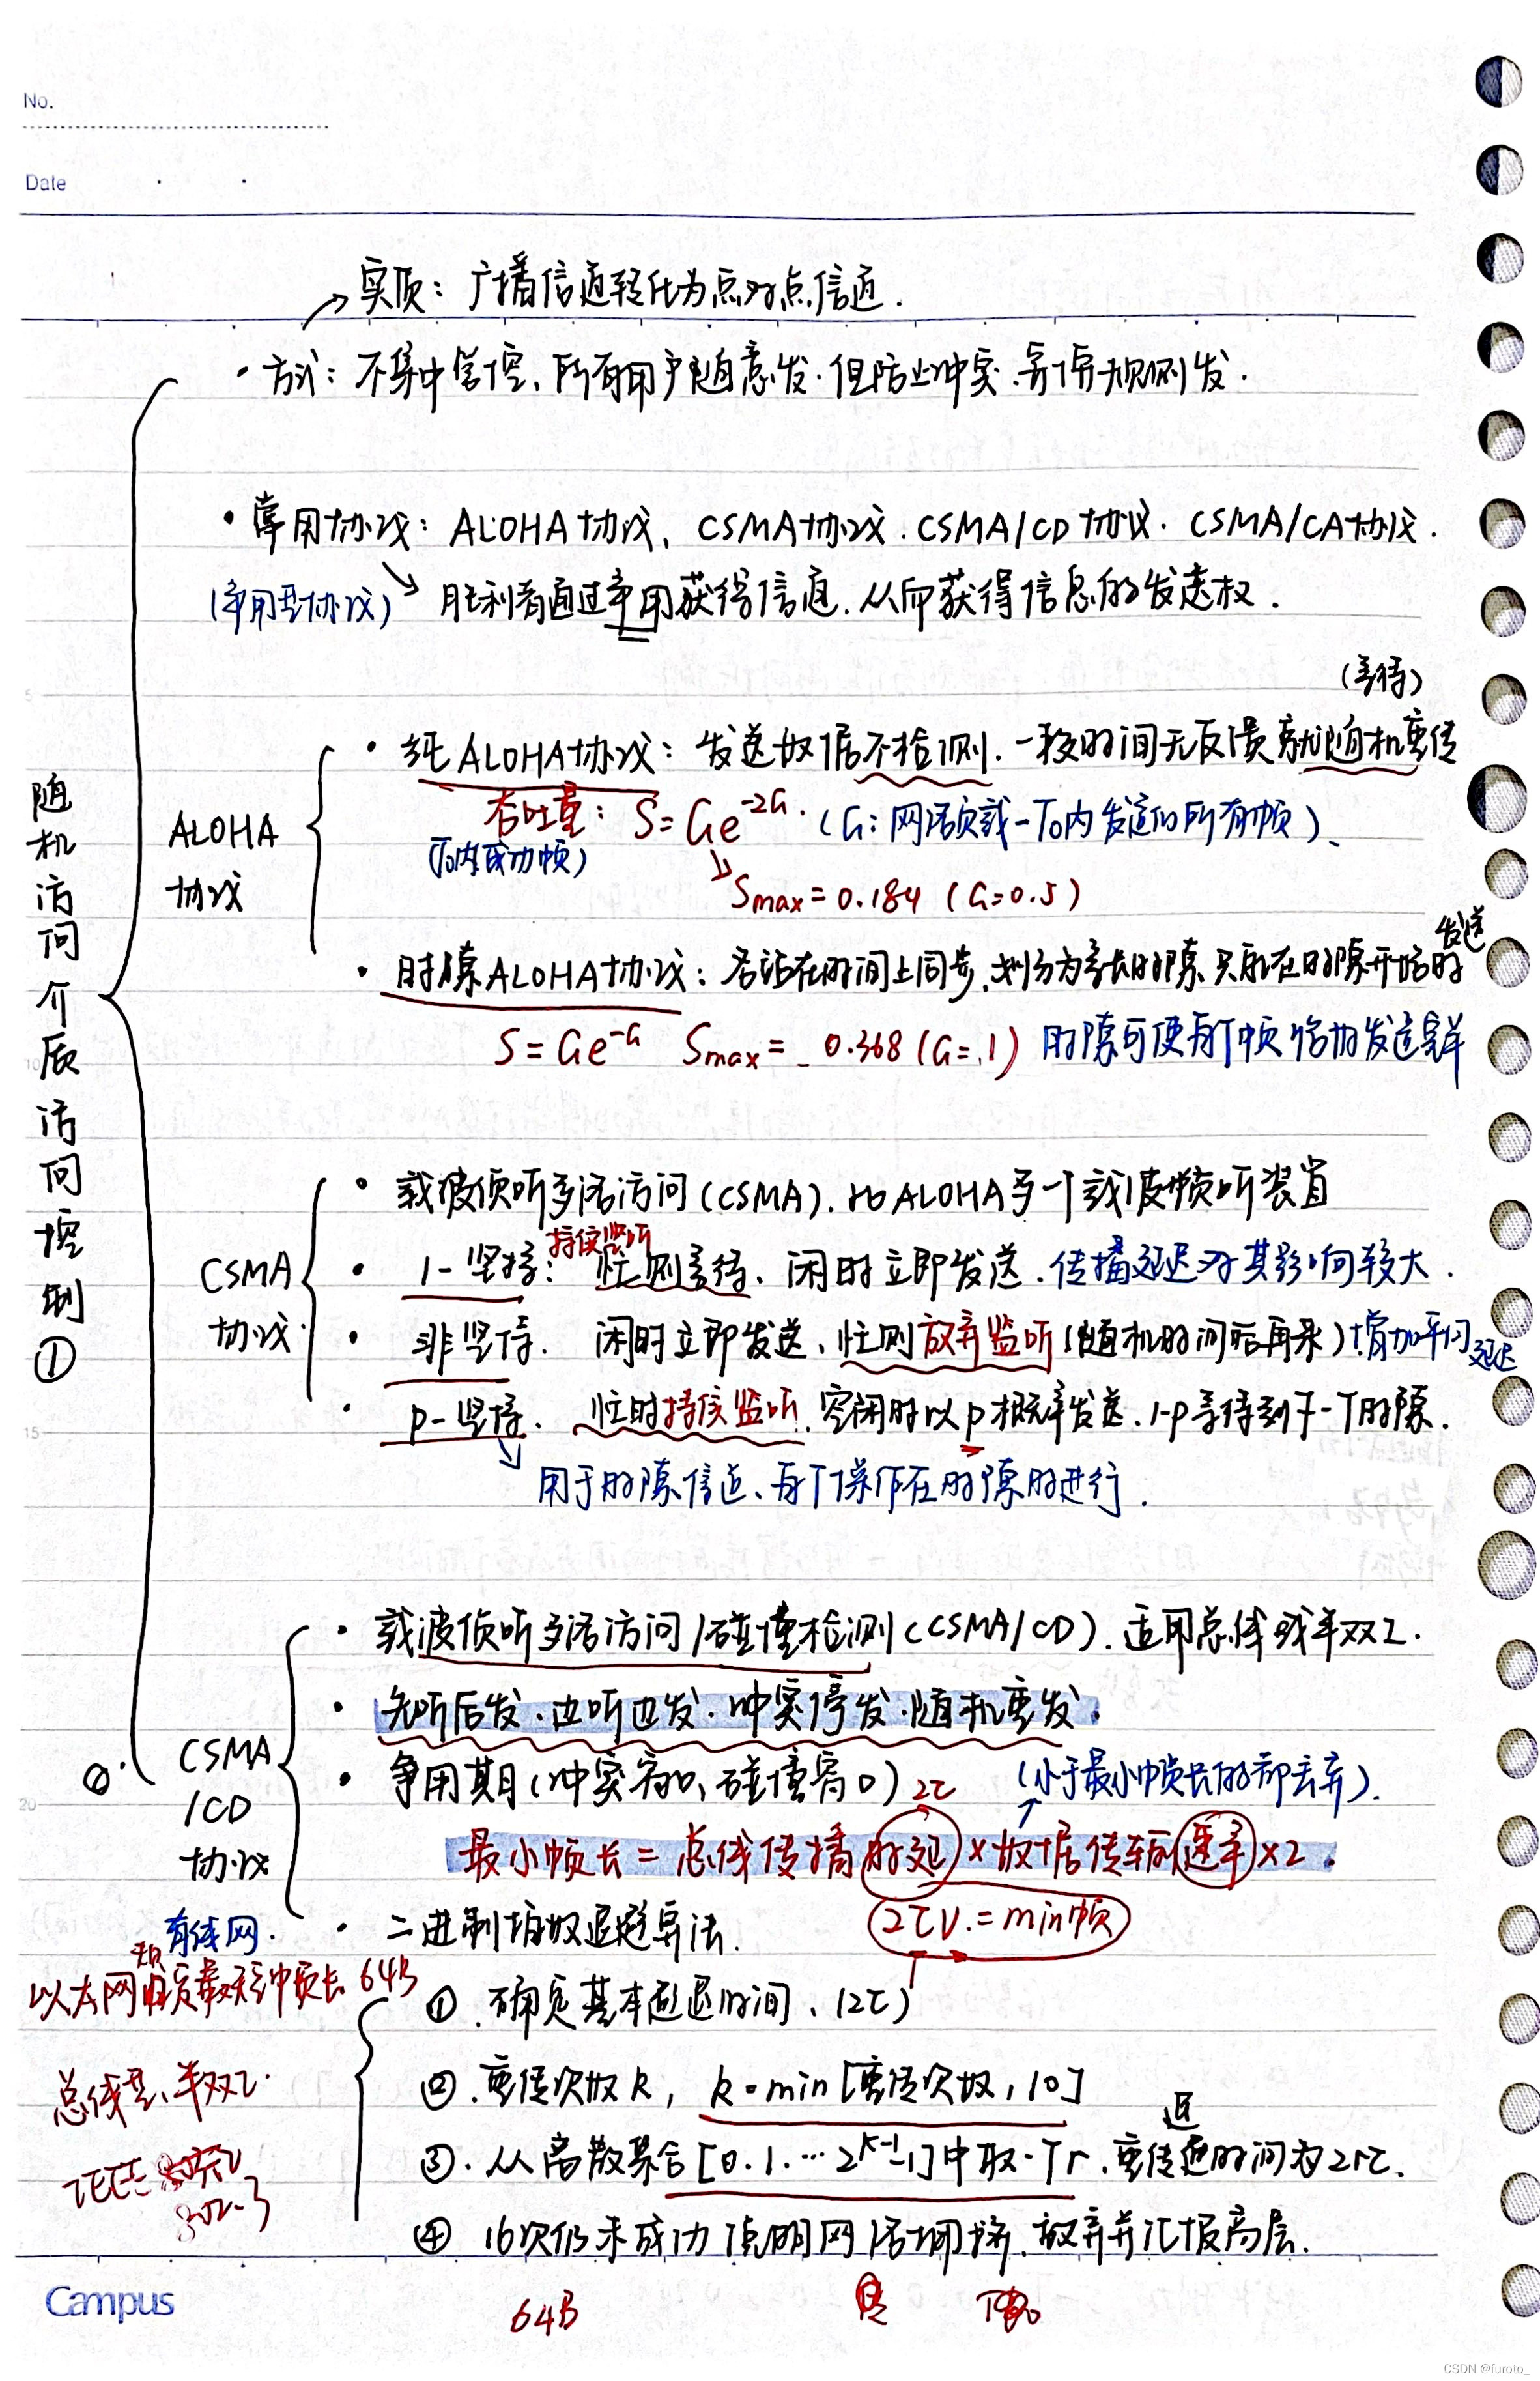 No.
Date
实质：广播信道转化为点对点信道．
· 方式：不集中管控、所有用户随意发．但防止冲突．需1需规则发．
· 常用协议：ALOHA协议、CSMA协议．CSMA/CD协议．CSMA/CA协议．
(争用型协议) 胜利者通过争用获得信道．从而获得信息的发送权．
(等待)
· 纯ALOHA协议：发送数据不检测．一段时间无反馈就随机重传
吞吐量：S=Ge^-2G．(G：网络负载-T0内发送的所有帧)、
(T0内成功帧)
Smax=0.184 (G=0.5)
ALOHA
协议
发送
· 时隙ALOHA协议：各站在时间上同步．划分为等长时隙 只能在时隙开始时
S=Ge^-G Smax= 0.368 (G=1) 时隙可使每个帧恰好发送完毕
随机访问介质访问控制①
· 载波侦听多路访问(CSMA)．比ALOHA多一个载波侦听装置
持续监听
· 1-坚持：忙则等待、闲时立即发送．传播延迟对其影响较大．
CSMA
协议．
· 非坚持．闲时立即发送、忙则放弃监听(随机时间后再来)增加平均延迟
· p-坚持．忙时持续监听．空闲时以p概率发送．1-p等待到下一个时隙．
用于时隙信道、每个操作在时隙时进行．
· 载波侦听多路访问/碰撞检测(CSMA/CD)．适用总线或半双工．
· 先听后发．边听边发．冲突停发．随机重发．
CSMA
/CD
协议
· 争用期(冲突窗口、碰撞窗口) 2τ (小于最小帧长的都丢弃)．
最小帧长=总线传播时延×数据传输速率×2．
2τV.=min帧
有线网．
· 二进制指数退避算法．
以太网规定最短帧长 64B
① ．确定基本退避时间、(2τ)
总线型、半双工．
② ．重传次数k，k=min[重传次数，10]
退
③ ．从离散集合[0．1．…2^k-1]中取一个r．重传退时间为2rτ．
IEEE
802.3
④ 16次仍未成功 说明网络拥挤．放弃并汇报高层．
Campus
64B
CSDN @furoto_